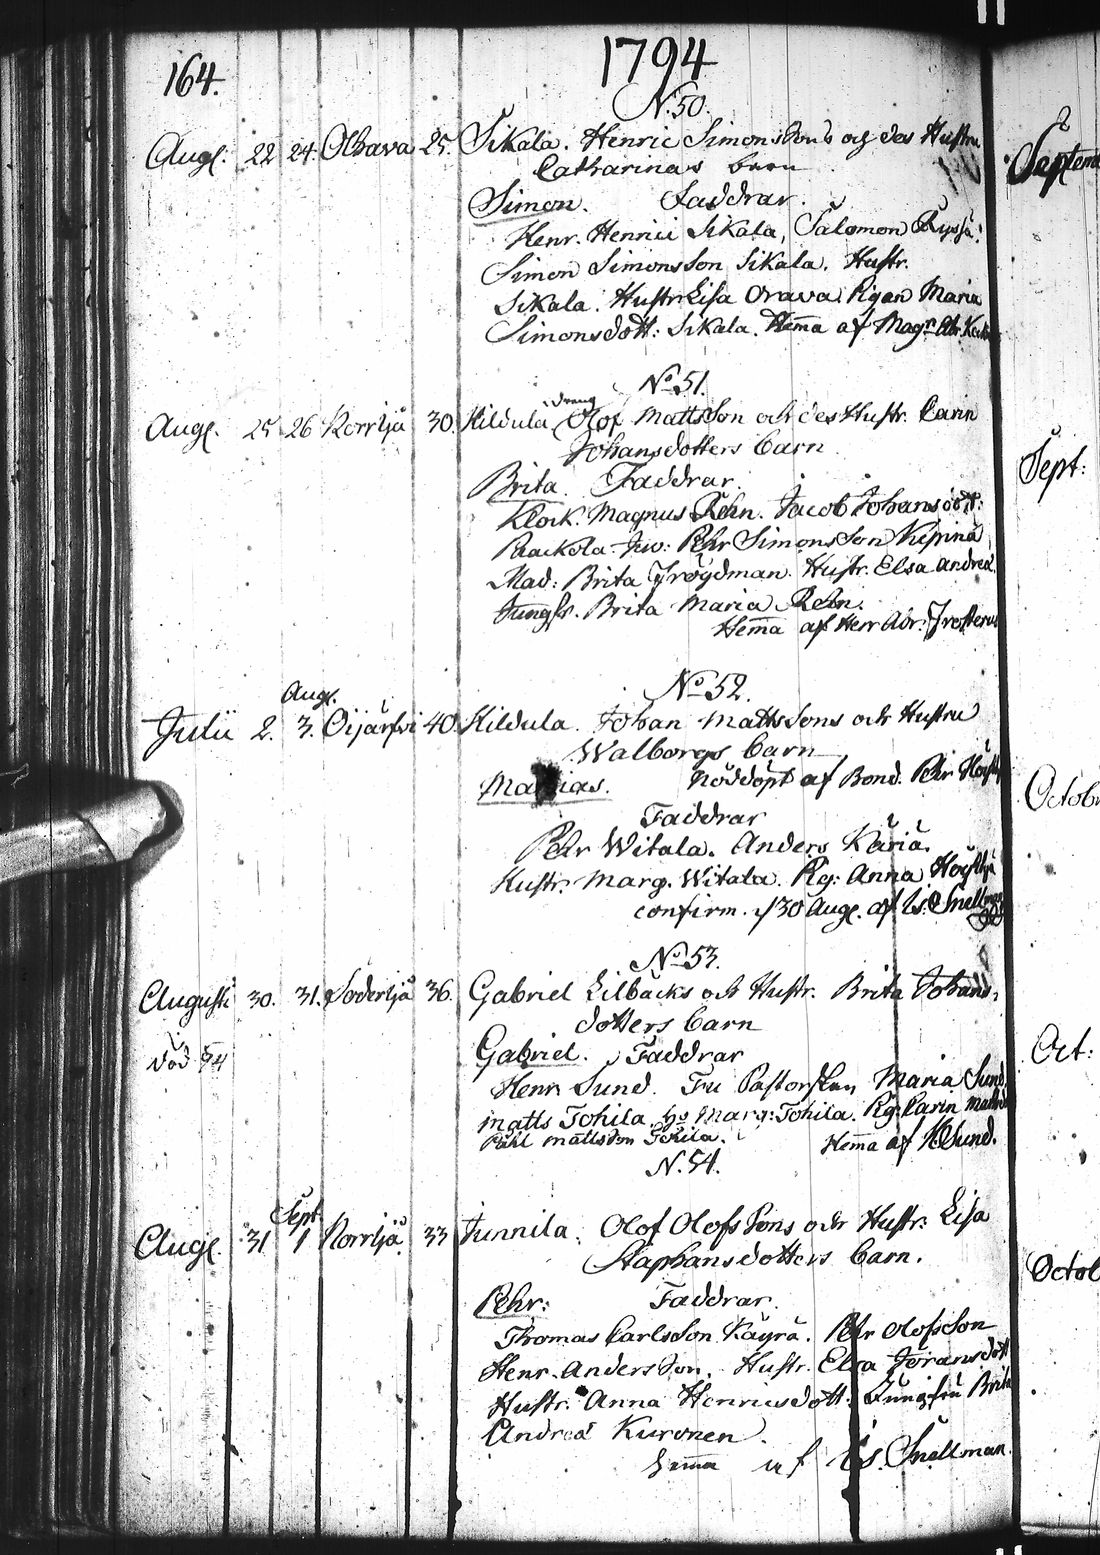 164. 1794
N:50.
Aug. 22 24. Olhava 25. Sikala. Henric Simonssons och des Hustru
Catharinas barn
Simon. Faddrar.
Henr. Henrici Sikala, Salomon
Simon Simonsson Sikala. Hustr.
Sikala. Hustr Lisa Orava Pigan Maria
Simonsdott: Sikala. Hemma af Mag:
No 51.
Aug. 25 26 Norrijå 30. Kildula dräng Olof Mattsson och des Hustr. Carin
Johansdotters barn
Brita. Faddrar.
Klock. Magnus Rehn. Jacob Johansdott:
Raackola. Pehr Simonsson Kipinä
Mad: Brita Frögdman. Hustr. Elsa Andrea
Jungfr. Brita Maria Rehn.
Hemma af Herr Adr:
No 52.
Aug.
Julii 2. 3. Oijärfvi 40. Kildula. Johan Mattssons och Hustru
Walborgs barn
Mattias. Nöddöpt af Bond. Pehr
Faddrar
Pehr Witala. Anders Käriä.
Hustr. Marg. Witala. Pig: Anna
confirm. d 30 Aug. af Is. Snellman
No 53.
Augusti 30. 31. Söderijå 36. Gabriel Lilbäcks och Hustr. Brita Johans-
dotters barn
död
Gabriel. Faddrar
Henr. Sund. Fru Pastorskan Maria Sund.
Matts Tohila, Marg: Tohila. Pig: Carin
Påhl Mattsson Tohila. Hemma af Sund.
N. 54.
Sept
Aug. 31 1 Norrijå 33 Junnila. Olof Olofssons och Hustr: Lisa
Staphansdotters barn.
Pehr: Faddrar.
Thomas Carlsson Käyrä. Pehr Olofsson
Henr. Andersson. Hustr. Elsa Joransdott
Hustr. Anna Henricsdott: Jungfru Brita
Andrea Kuronen.
hemma af Is. Snellman.
Septem
Sept:
Octob
Oct:
Octob